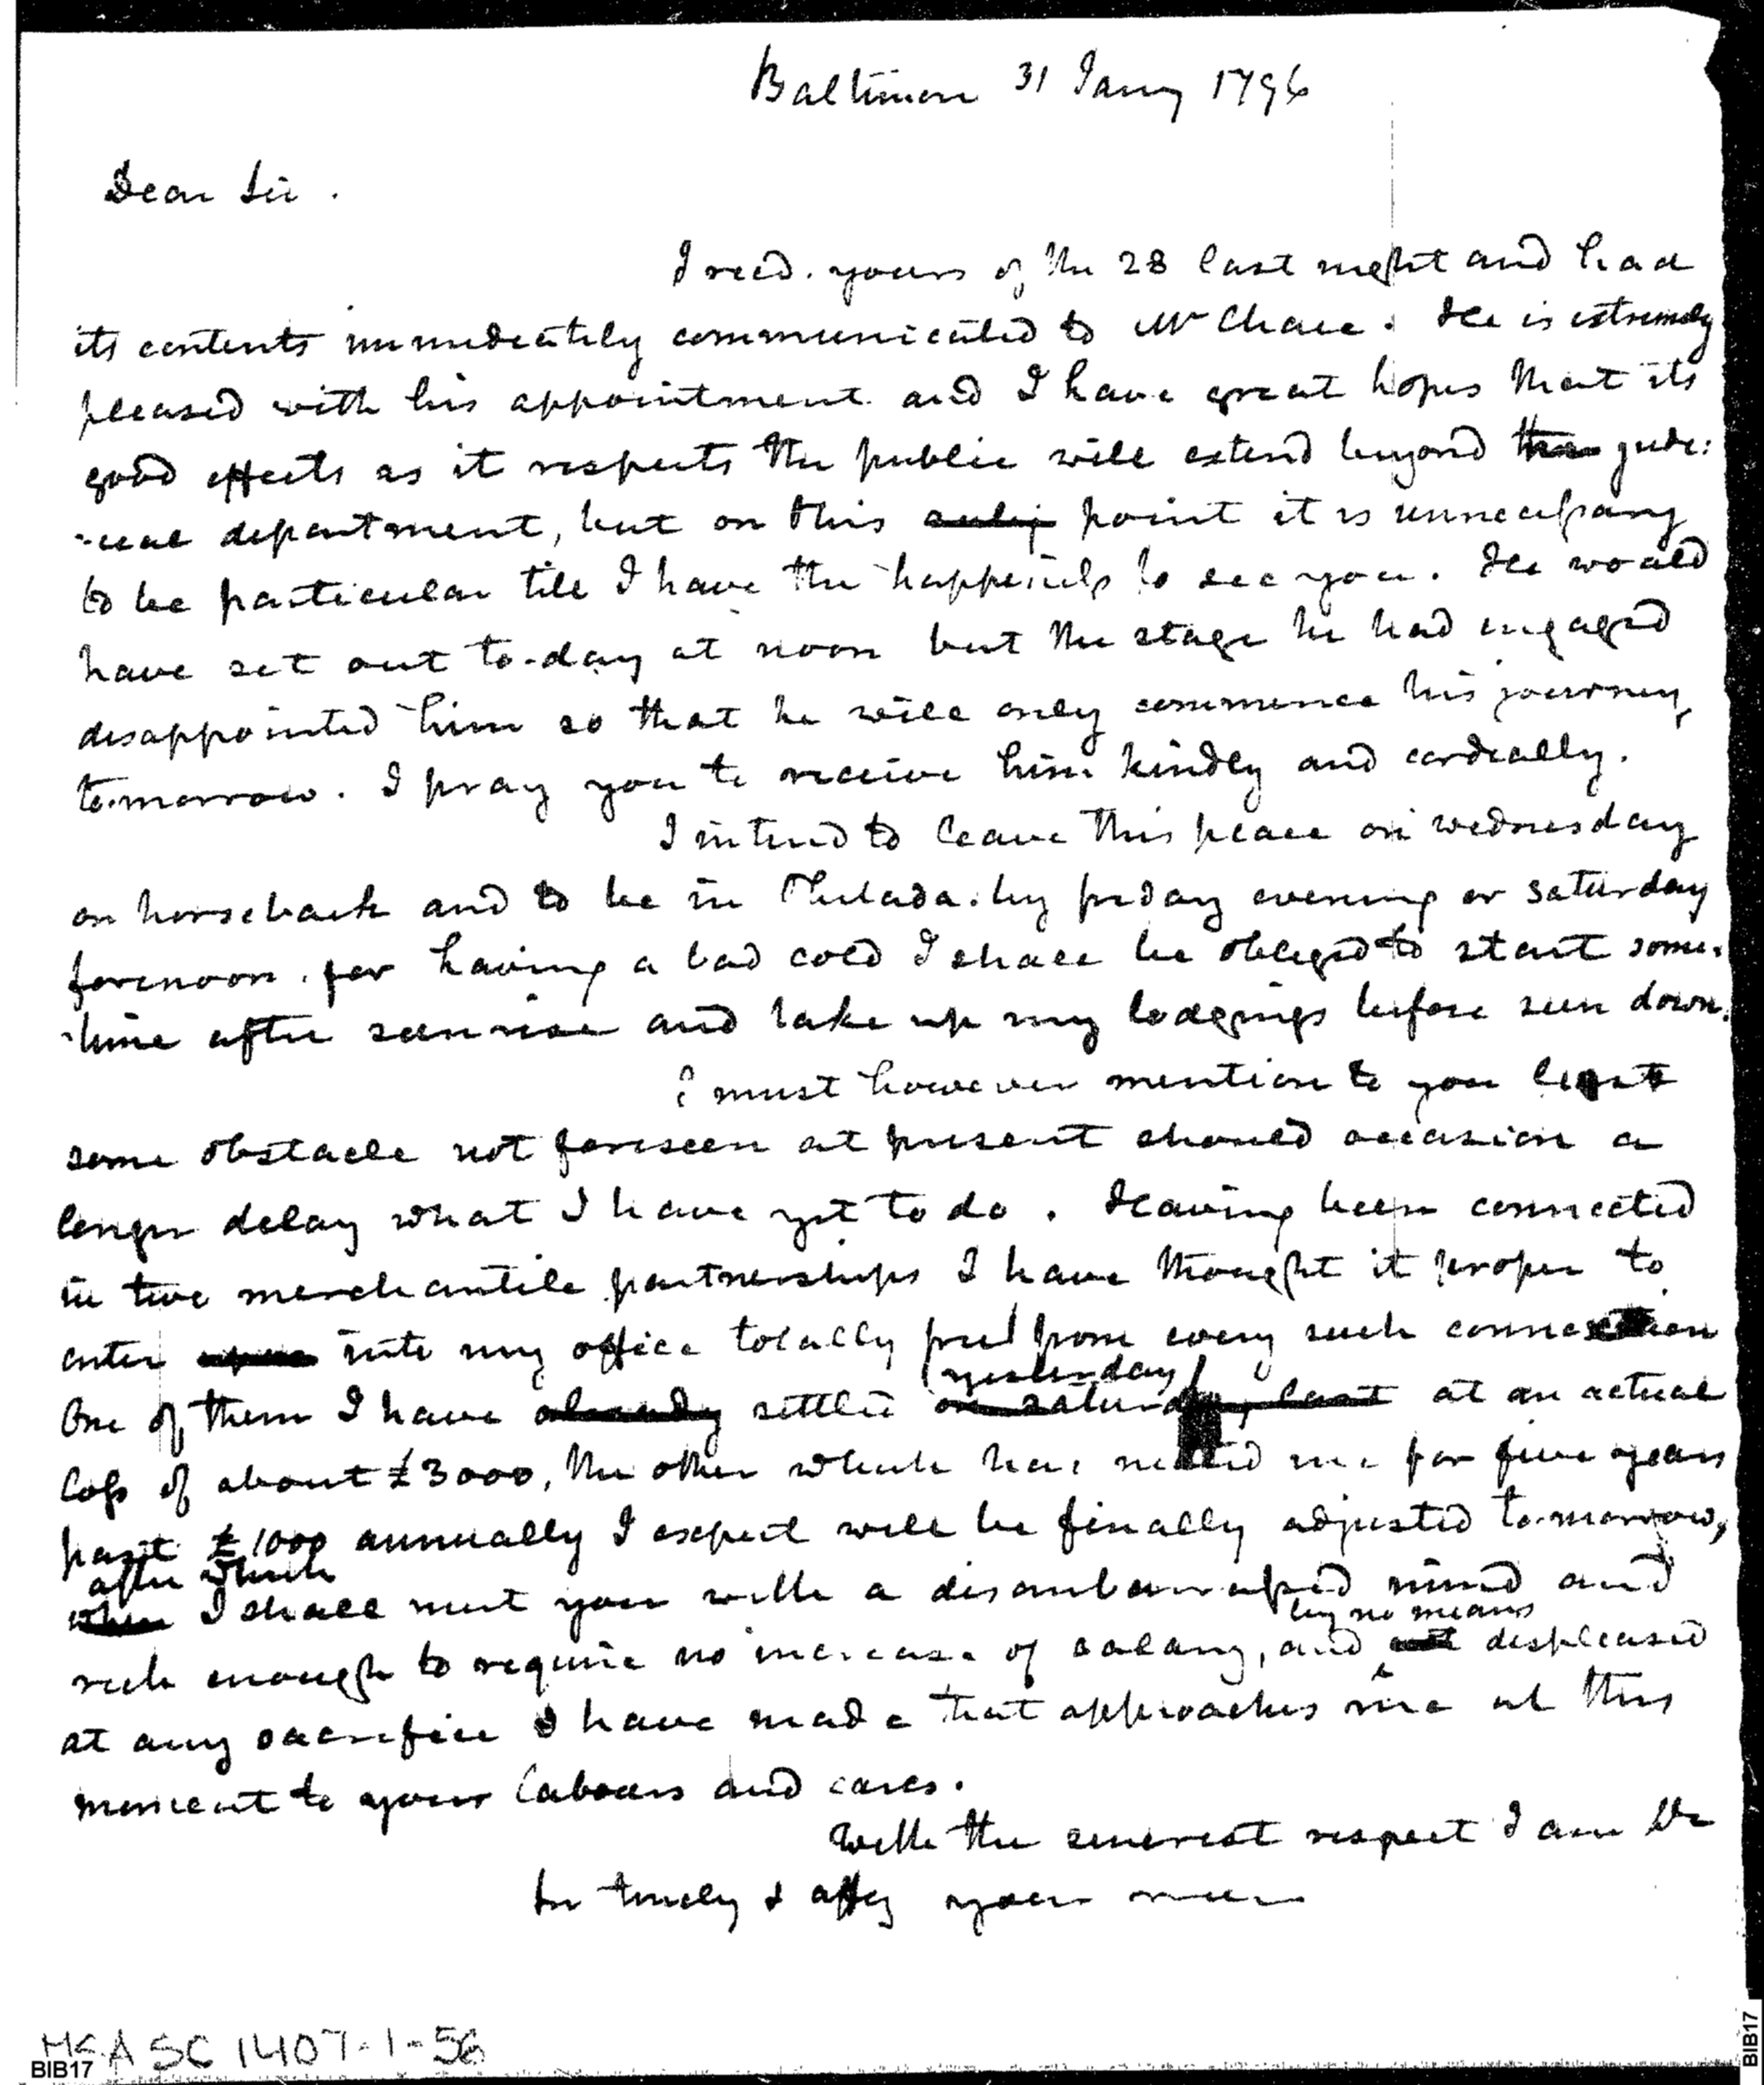 Baltimore 31 Jany 1796
Dear Sir.
I recd. yours of the 28 last night and had
its contents immediately communicated to Mr Chace. He is extremely
pleased with his appointment and I have great hopes that its
good effects as it respects the public will extend beyond the judi:
-cial department, but on this subj point it is unnecessary
to be particular till I have the happiness to see you. He would
have set out to-day at noon but the stage he had engaged
disappointed him so that he will only commence his journey
to-morrow. I pray you to receive him kindly and cordially.
I intend to leave this place on wednesday
on horseback and to be in Philada. by friday evening or saturday
forenoon, for having a bad cold I shall be obliged to start some-
-time after sunrise and take up my lodgings before sun down.
I must however mention to you lest
some obstacle not foreseen at present should occasion a
longer delay what I have yet to do. Having been connected
in two merchantile partnerships I have thought it proper to
enter upon into my office totally free from every such connection
yesterday
One of them I have already settled on saturday last at an actual
loss of about £3000, the other which has netted me for five years
past £1000 annually I expect will be finally adjusted to-morrow,
after which
when I shall meet you with a disembarrassed mind and
by no means
rich enough to require no increase of salary, and not displeased
at any sacrifice I have made that approaches me at this
moment to your labours and cares.
With the sincerest respect I am Dr
Sir truly & affy your
MSA SC 1407-1-56
BIB17
BIB17